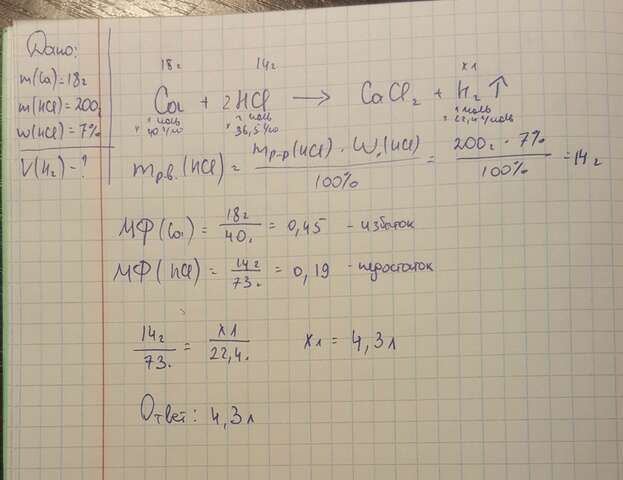 Дано:
m(Ca)=18г
m(HCl)=200г
w(HCl)=7%
V(H₂)-?
18г 14г x л
Ca + 2HCl → CaCl₂ + H₂↑
1 моль 2 моль 1 моль
40 г/мо 36,5 г/мо 22,4 л/моль
m р.в.(HCl) = m р-р(HCl) · W.(HCl) / 100% = 200г · 7% / 100% = 14г
МФ(Ca) = 18г / 40. = 0,45 - избыток
МФ(HCl) = 14г / 73. = 0,19 - недостаток
14г / 73. = x л / 22,4. x л = 4,3л
Ответ: 4,3л